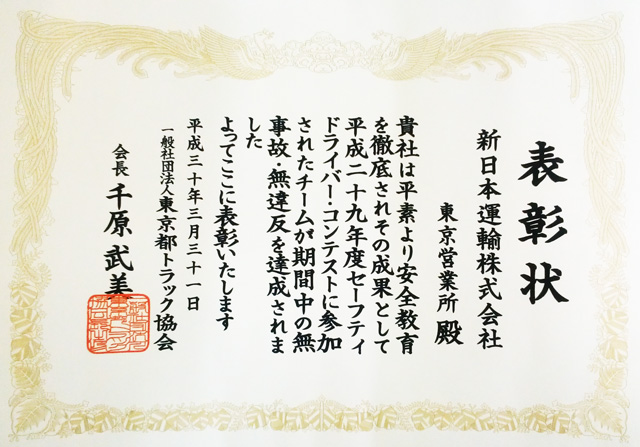 表彰状
新日本運輸株式会社
東京営業所 殿
貴社は平素より安全教育
を徹底されその成果として
平成二十九年度セーフティ
ドライバー・コンテストに参加
されたチームが期間中の無
事故・無違反を達成されま
した
よってここに表彰いたします
平成三十年三月三十一日
一般社団法人東京都トラック協会
会長 千原武美